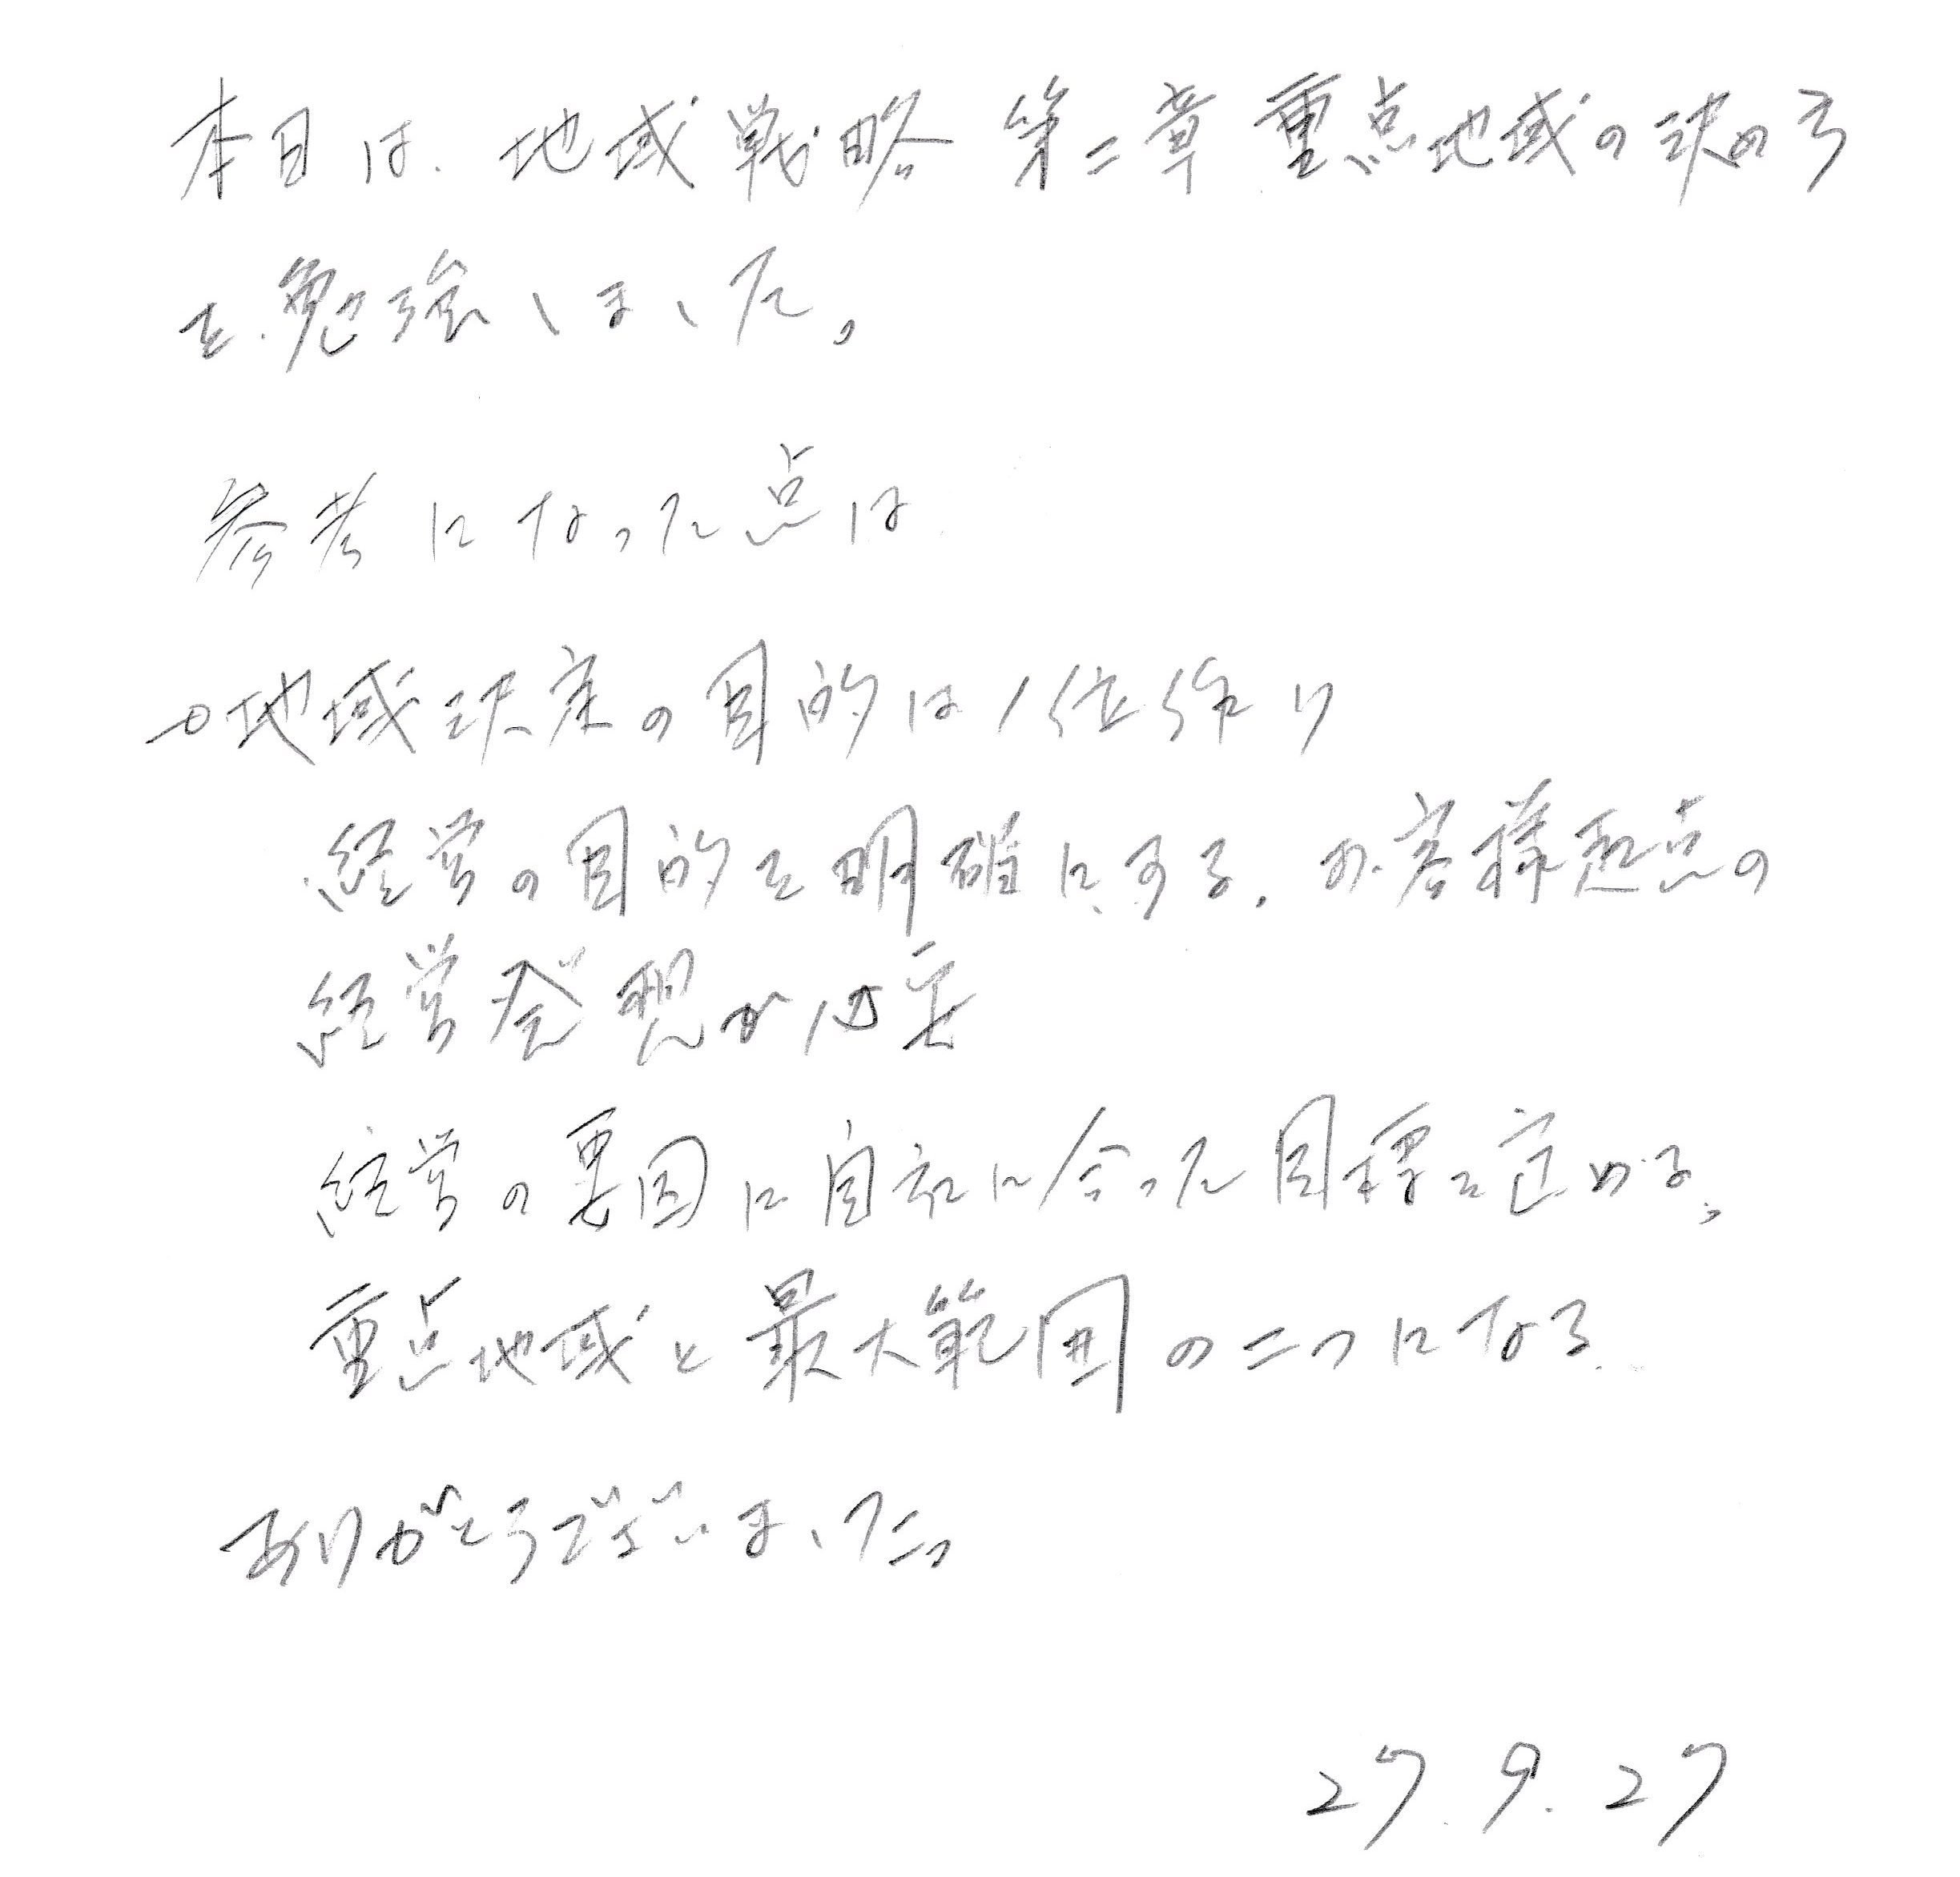 本日は、地域戦略 第二章 重点地域の決め方
を勉強しました。
参考になった点は
→地域決定の目的は1位作り
経営の目的を明確にする。お客様起点の
経営発想が必要
経営の要因に自社に合った目標を定める。
重点地域と最大範囲の二つになる。
ありがとうございました。
27.9.27